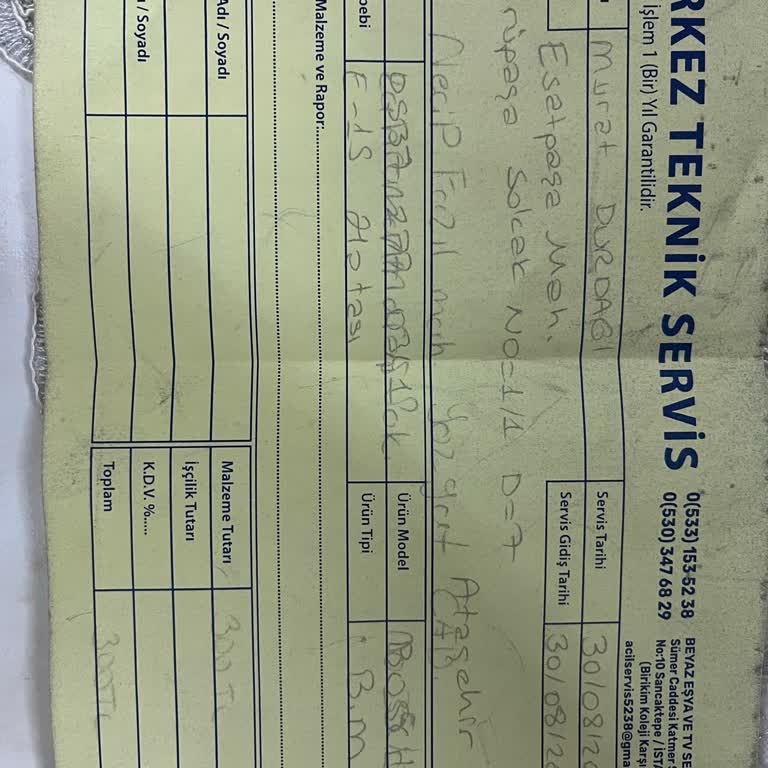 RKEZ TEKNİK SERVİS
İşlem 1 (Bir) Yıl Garantilidir.
0(533) 153 52 38
0(530) 347 68 29
BEYAZ EŞYA VE TV SE
Sümer Caddesi Katmer S
No:10 Sancaktepe / İST
(Birikim Koleji Karşı
acilservis5238@gma
Murat DURDAĞI
Servis Tarihi 30/08/20
Esatpaşa Mah.
Servis Gidiş Tarihi 30/08/20
rüpaşa Solcak No=1/1 D=7
Necip Fazıl mah. Ataşehir
Ürün Model BOSCH
ebi E-15 Hatası
Ürün Tipi B.M
Malzeme ve Rapor:
Adı / Soyadı
Malzeme Tutarı 300 TL
İşçilik Tutarı
ı / Soyadı
K.D.V. %.....
Toplam 300 TL